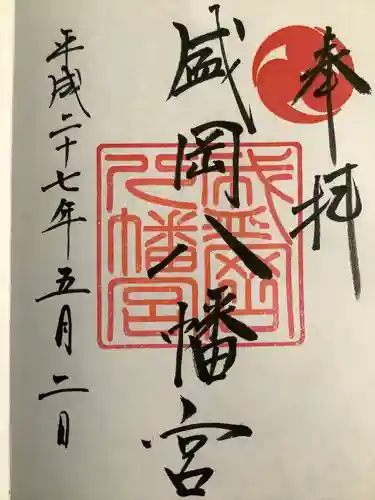 奉拝
盛岡八幡宮
平成二十七年五月二日
盛岡
八幡宮